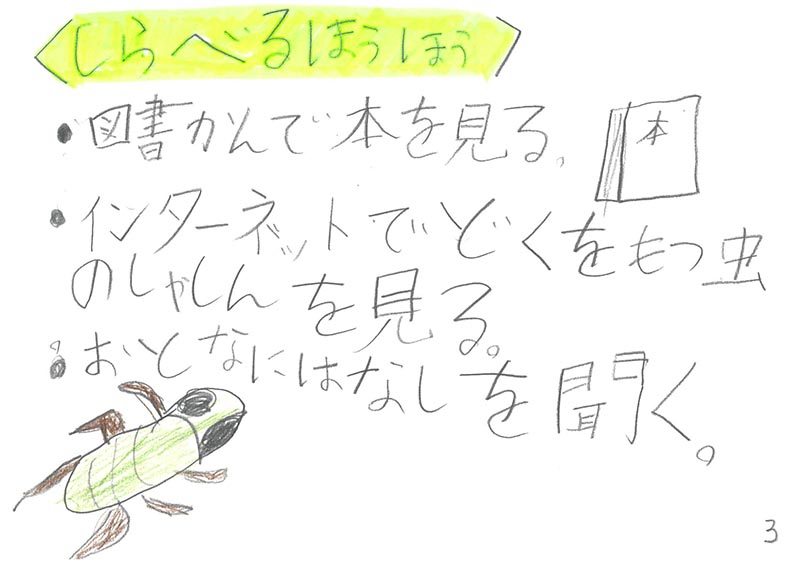 しらべるほうほう
・図書かんで本を見る。
本
・インターネットでどくをもつ虫
のしゃしんを見る。
・おとなにはなしを聞く。
3